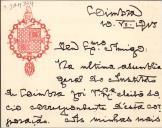 Coimbra
10. VI. 1915
Meu Ex.mo Amigo.
Na ultima assembleia
geral do Instituto
de Coimbra foi V. Ex.a eleito so-
cio correspondente d'essa cor-
poração. As minhas mais